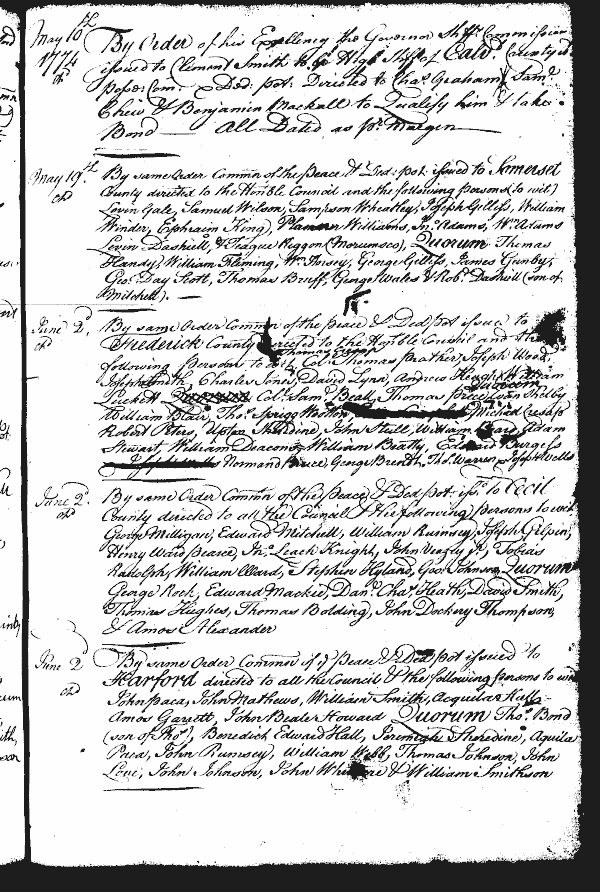 May 10th 1774 By Order of his Excellency the Governor Shff Commission
issued to Clement Smith to be High Shff of Calvt County
posse: Com. & Ded: pot: Directed to Chas Graham, Saml
Chew & Benjamin Mackall to Qualify him & take
Bond — All Dated as pr Margen
May 19th By same Order Commn of the peace & Ded: pot: issued to Somerset
County directed to the Honble Council and the following persons (to wit)
Levin Gale, Samuel Wilson, Sampson Wheatley, Joseph Gilliss, William
Winder, Ephraim King, Planner Williams, Jn. Adams, Wm Adams
Levin Dashiell, & Teague Riggon (Morumsco), Quorum Thomas
Handy, William Fleming, Wm Ivisey, George Gilliss, James Gunby,
Geo: Day Scott, Thomas Bruff, George Wales & Robt Dashiell (son of
Mitchell). —
June 2d By same Order Commn of the peace & Ded pot issued to
Frederick County directed to the Honble Council and the
following persons to wit, Col: Thomas Prather, Joseph Wood,
Joseph Smith, Charles Jones, David Lynn, Andrew Heugh, William
Luckett Colo Saml Beall, Thomas Price, Evan Shelby
William Blair, Thos Sprigg Wootton Michael Cresap
Robert Peters, Upton Sheredine, John Stull, William Adam
Stewart, William Deacons, William Beatty, Edward Burgess
Normand Bruce, George Brenth, Thos Warren, Joseph Wells
June 2d By same Order Commn of the Peace, & Ded: pot: issd to Cecil
County directed to all the Council & the following persons to wit
George Milligan, Edward Mitchell, William Rumsey, Joseph Gilpin,
Henry Ward Pearce, Jno Leach Knight, John Veazly jr, Tobias
Rudolph, William Ward, Stephen Hyland, Geo: Johnson, Quorum
George Rock, Edward Mackie, Danl Chas Heath, David Smith,
Thomas Hughes, Thomas Bolding, John Dockery Thompson,
& Amos Alexander
June 2d By same Order Commn of ye Peace & Ded pot issued to
Harford directed to all the Council & the following persons to wit
John paca, John Mathews, William Smith, Acquila Hall
Amos Garrett, John Beale Howard Quorum Thos Bond
(son of Thos), Benedict Edward Hall, Jeremiah Sheredine, Aquila
Paca, John Rumsey, William Webb, Thomas Johnson, John
Love, John Johnson, John & William Smithson